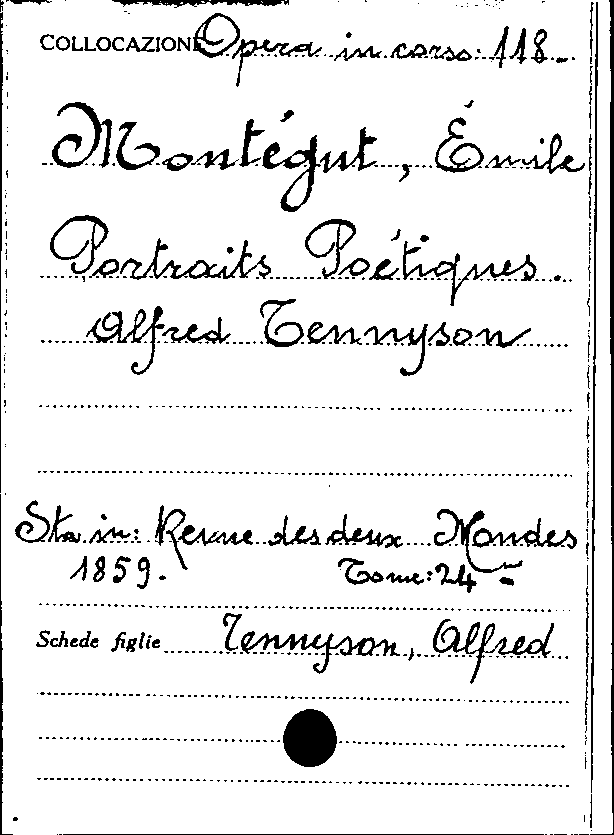 COLLOCAZIONE Opera in corso: 118-
Montégut, Émile
Portraits Poétiques.
Alfred Tennyson
Sta in: Revue des deux Mondes
1859. Tome: 24-
Schede figlie Tennyson, Alfred